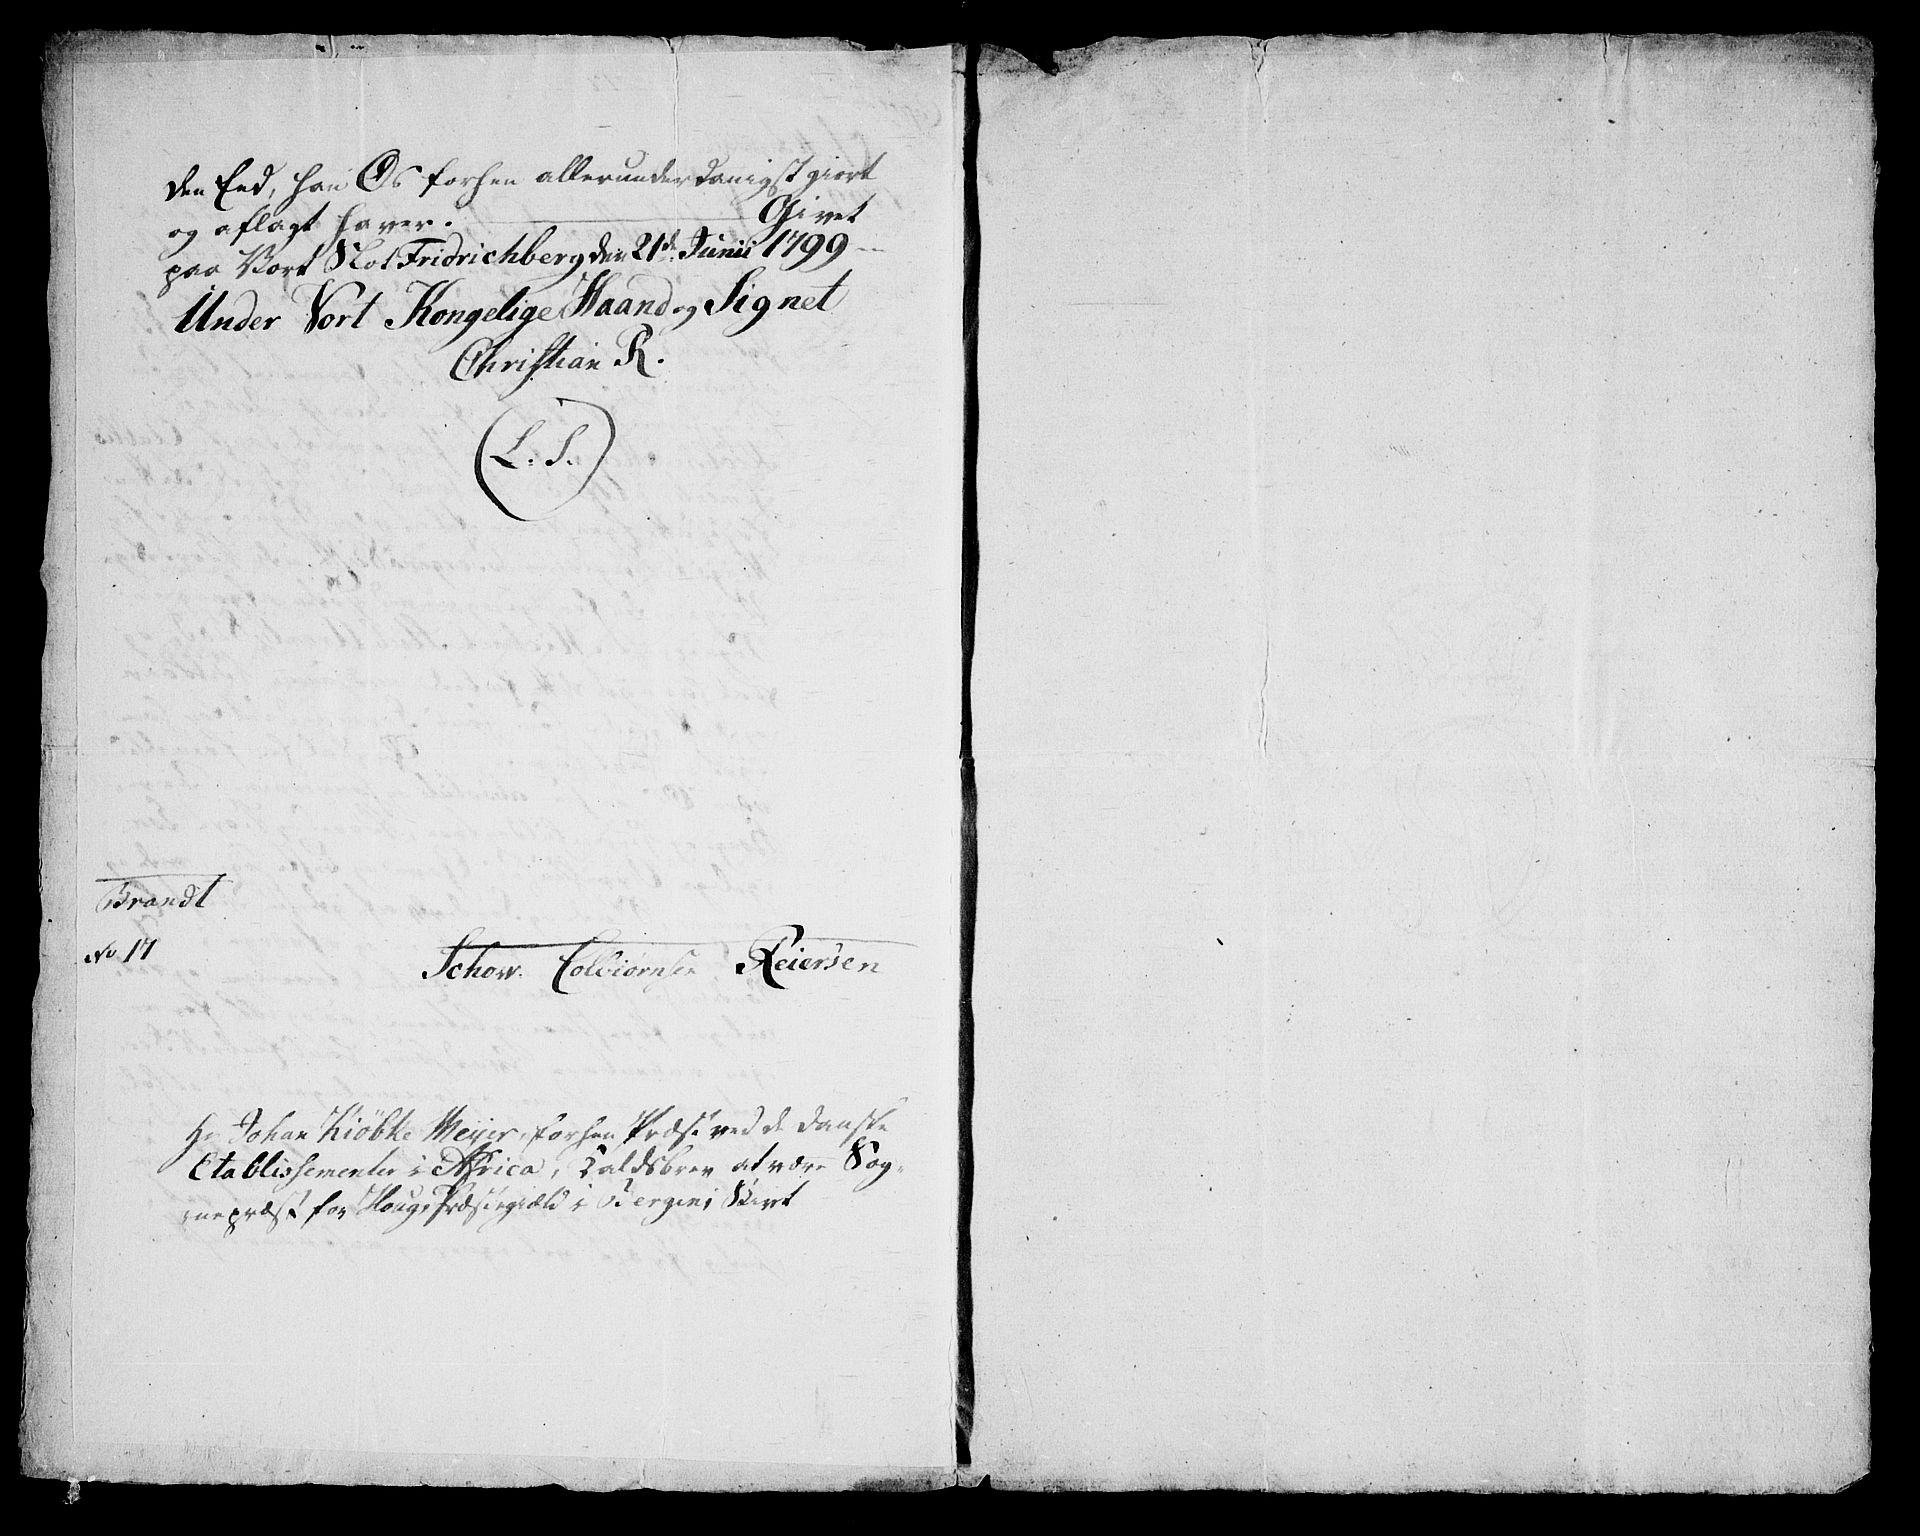 den Eed, han Os forhen allerunderdanigst giort
og aflagt haver. Givet
paa Vort Slot Fridrichberg den 21de Junii 1799
Under Vort Kongelige Haand og Signet
Christian R.
(L. S.)
Brandt
No 17
Schow. Colbiørnsen Reiersen
Hr Johan Kiöbke Meyer, forhen Præst ved de danske
Etablissementer i Africa, Kaldsbrev at være Sog-
nepræst for Houg Præstegield i Bergens Stivt